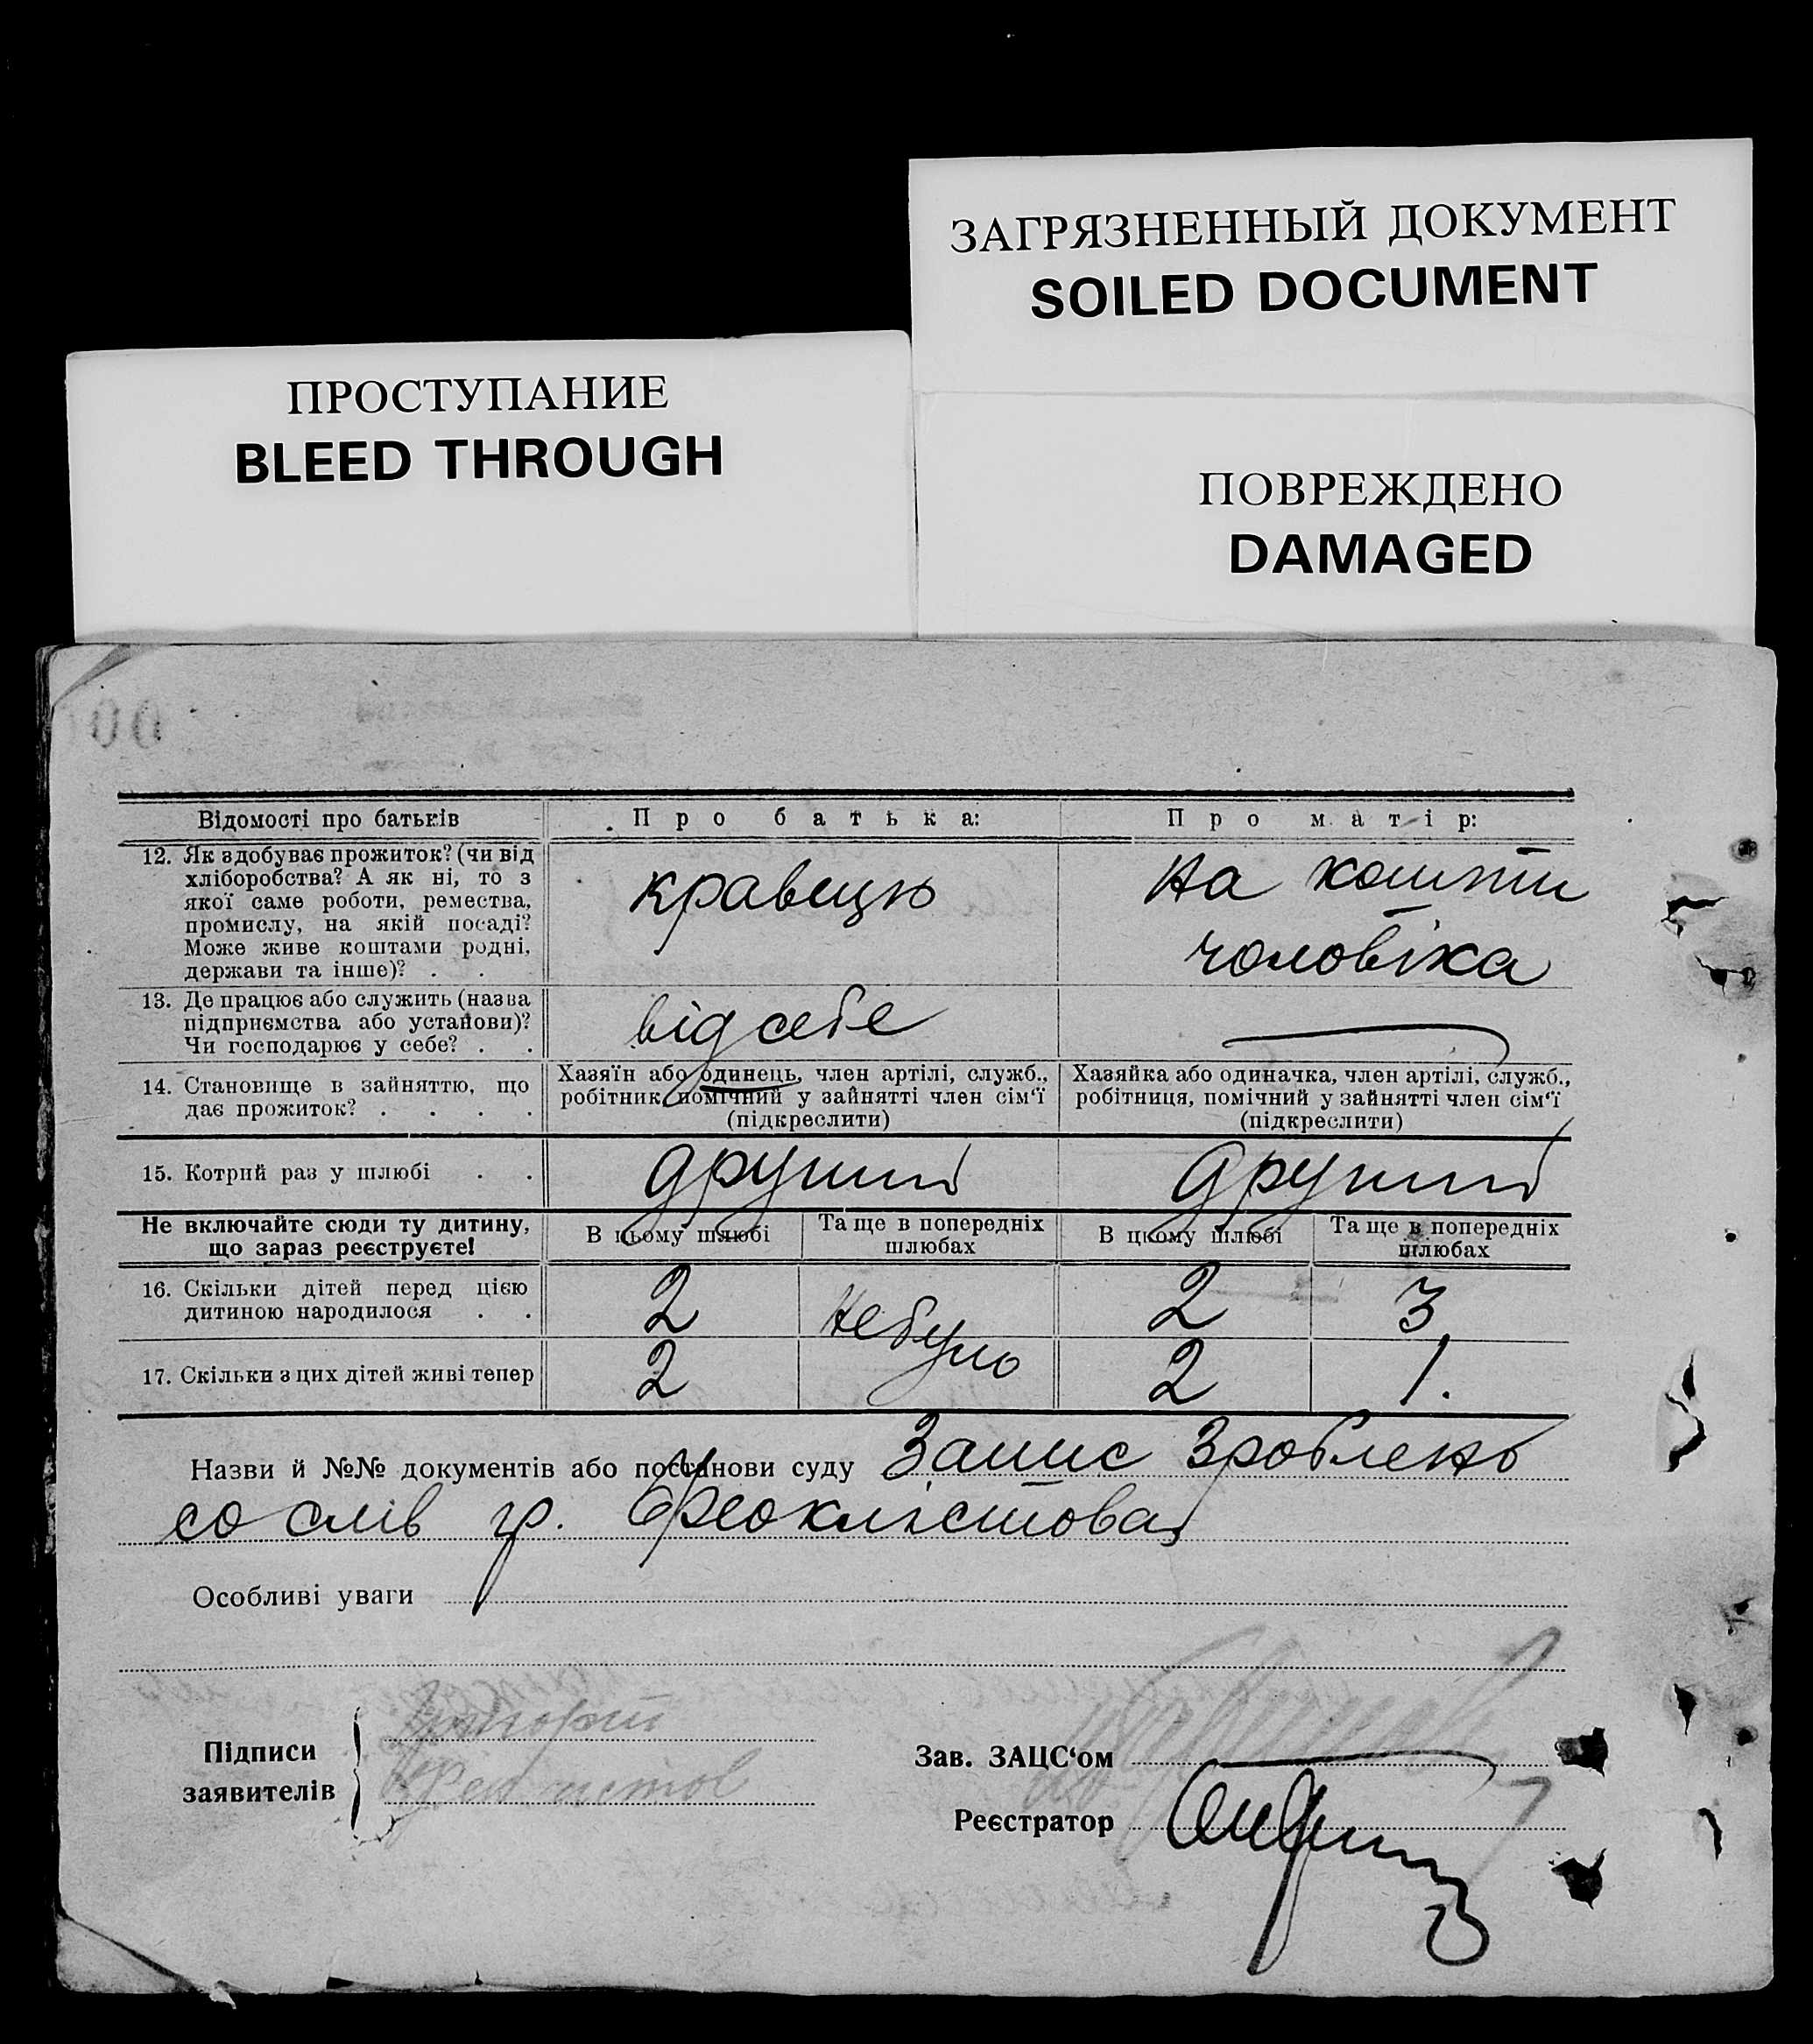 ЗАГРЯЗНЕННЫЙ ДОКУМЕНТ
SOILED DOCUMENT
ПРОСТУПАНИЕ
BLEED THROUGH
ПОВРЕЖДЕНО
DAMAGED
Відомості про батьків
Про батька:
Про матір:
12. Як здобуває прожиток? (чи від
хліборобства? А як ні, то з
якої саме роботи, ремества,
промислу, на якій посаді?
Може живе коштами родні,
держави та інше)? . .
кравецю
на кошти
чоловіка
13. Де працює або служить (назва
підприємства або установи)?
Чи господарює у себе? . .
від себе
14. Становище в зайняттю, що
дає прожиток? . . . .
Хазяїн або одинець, член артілі, служб.,
робітник помічний у зайнятті член сім'ї
(підкреслити)
Хазяйка або одиначка, член артілі, служб.,
робітниця, помічний у зайнятті член сім'ї
(підкреслити)
15. Котрий раз у шлюбі . .
другий
другий
Не включайте сюди ту дитину,
що зараз реєструєте!
В цьому шлюбі
Та ще в попередніх
шлюбах
В цьому шлюбі
Та ще в попередніх
шлюбах
16. Скільки дітей перед цією
дитиною народилося . .
2
не було
2
3
17. Скільки з цих дітей живі тепер
2
2
1.
Назви й №№ документів або постанови суду Запис зроблено
со слів гр. Феоклістова
Особливі уваги
Підписи
заявителів
Зав. ЗАЦС'ом
Реєстратор